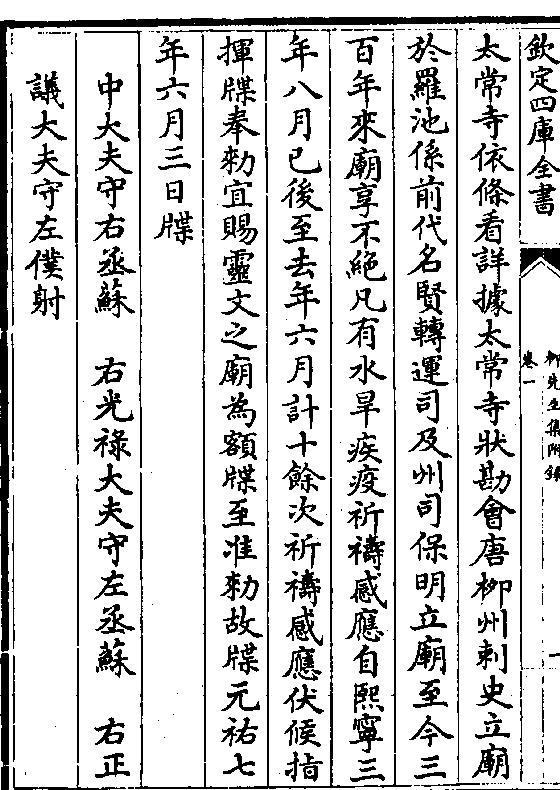 欽定四庫全書
柳先生集附錄
卷一
一
太常寺依條看詳據太常寺狀勘會唐柳州刺史立廟
於羅池係前代名賢轉運司及州司保明立廟至今三
百年來廟享不絶凡有水旱疾疫祈禱感應自熙寧三
年八月已後至去年六月計十餘次祈禱感應伏候指
揮牒奉勑宜賜靈文之廟為額牒至准勑故牒元祐七
年六月三日牒
中大夫守右丞蘇　右光祿大夫守左丞蘇　右正
議大夫守左僕射